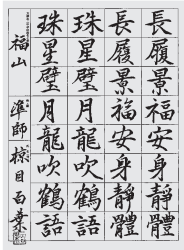 長履景福安身靜體
長履景福安身靜體
珠星璧月龍吹鶴語
珠星璧月龍吹鶴語
福山 準師 椋目百葉